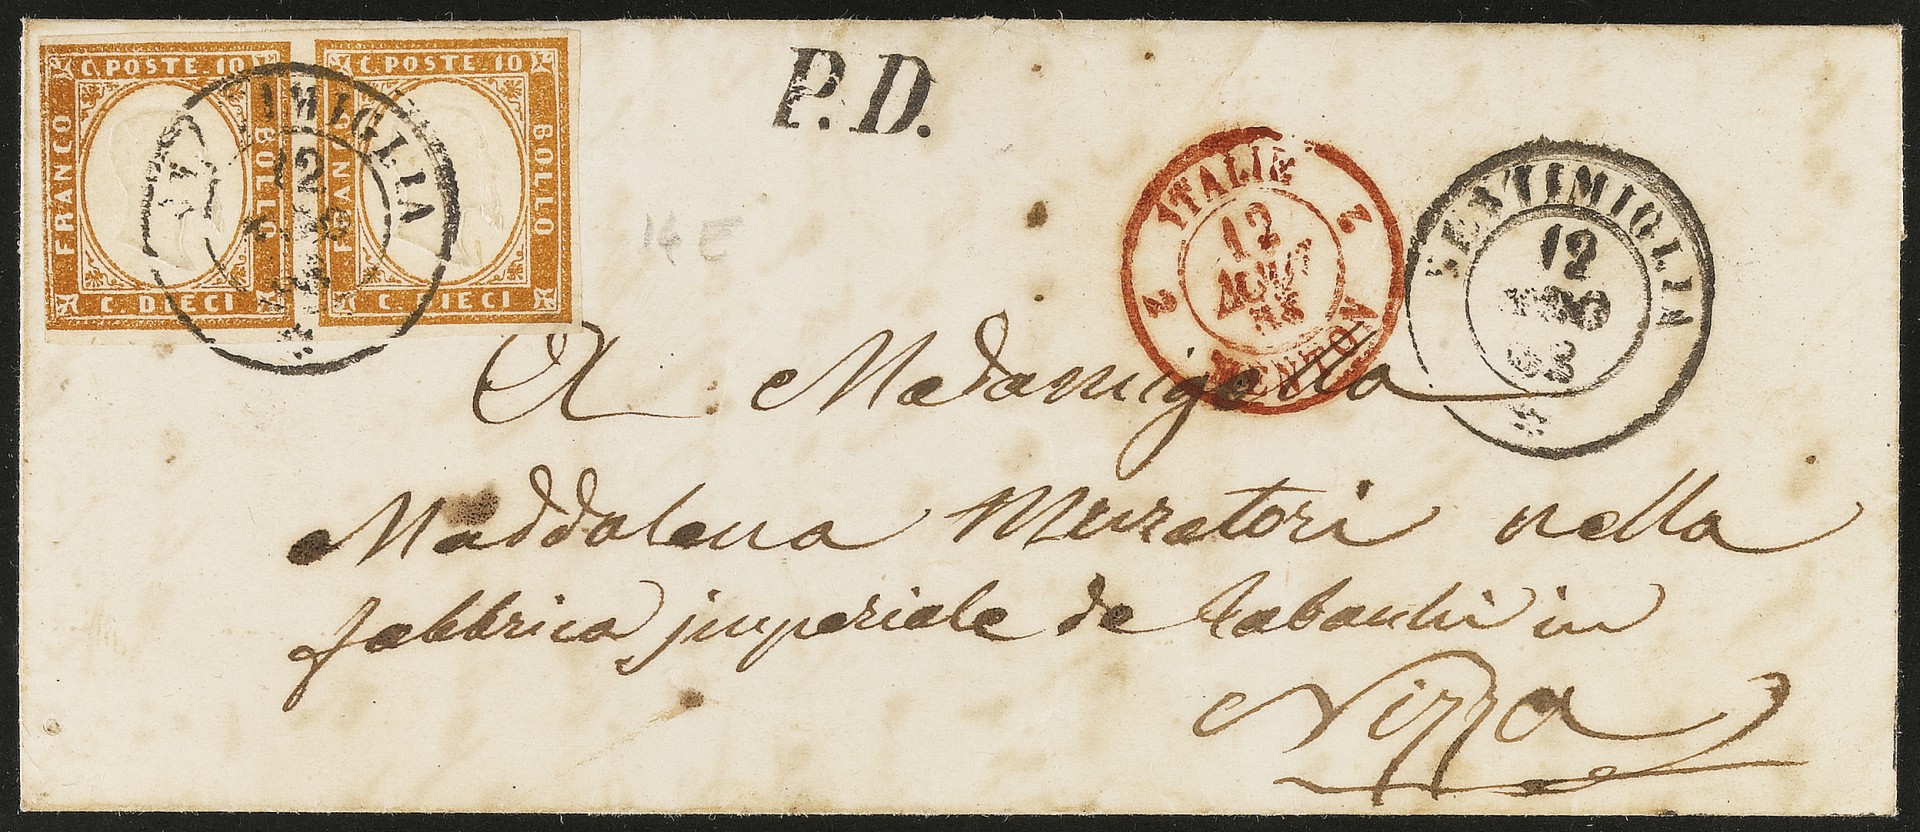 C. POSTE. 10
FRANCO
BOLLO
C. DIECI
C. POSTE. 10
BOLLO
C. DIECI
12
P.D.
ITALIE
12
AOUT
2
2
MENTON
VENTIMIGLIA
12
AGO
62
14 E
A Madamigella
Maddalena Muratori nella
fabbrica imperiale de Tabachi in
Nizza